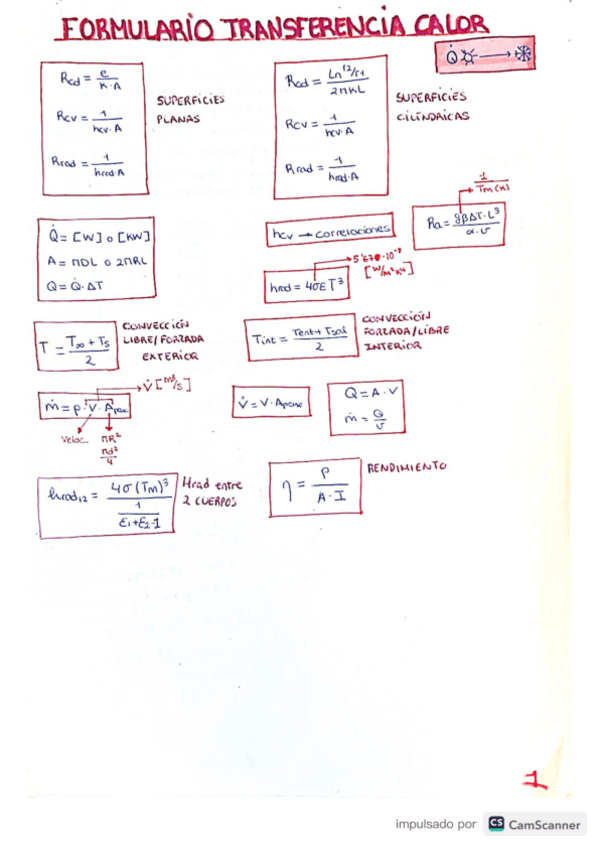 FORMULARIO TRANSFERENCIA CALOR
Q̇ ☼ → ❄
Rcd = e / K·A
Rcv = 1 / hcv·A
Rrad = 1 / hrad·A
SUPERFICIES
PLANAS
Rcd = Ln r2/r1 / 2πKL
Rcv = 1 / hcv·A
Rrad = 1 / hrad·A
SUPERFICIES
CILÍNDRICAS
Q̇ = [W] o [KW]
A = πDL o 2πRL
Q = Q̇·ΔT
hcv → correlaciones
1 / Tm(K)
Ra = gβΔT·L³ / α·υ
5'670·10⁻⁸
[W/m²K⁴]
hrad = 4σεT³
T = T∞ + Ts / 2
CONVECCIÓN
LIBRE/FORZADA
EXTERIOR
Tint = Tent + Tsal / 2
CONVECCIÓN
FORZADA/LIBRE
INTERIOR
V̇ [m³/s]
ṁ = ρ·V·Apaso
Veloc.
πR²
πd²/4
V̇ = V·Apaso
Q = A·V
ṁ = Q / υ
hrad12 = 4σ(Tm)³ / 1 / ε1+ε2-1
Hrad entre
2 CUERPOS
η = P / A·I
RENDIMIENTO
1
impulsado por CS CamScanner